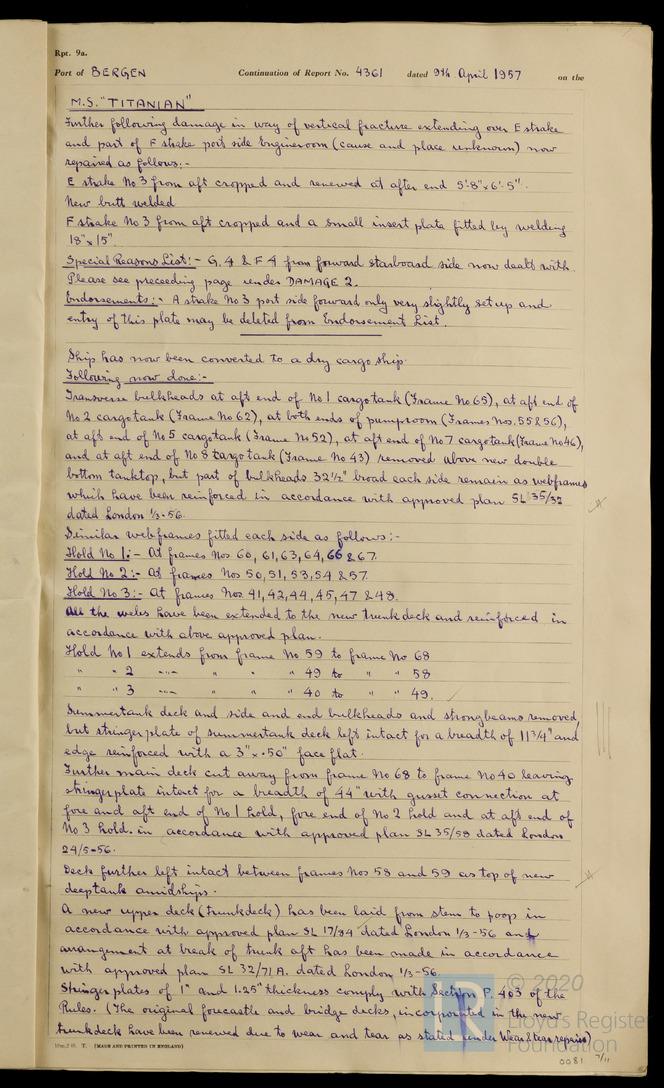 Rpt. 9a.
Port of BERGEN Continuation of Report No. 4361 dated 9th April 1957 on the
M.S. "TITANIAN"
Further following damage in way of vertical fracture extending over E strake
and part of F strake port side Engineroom (cause and place unknown) now
repaired as follows:-
E strake No 3 from aft cropped and renewed at after end 5'-8" x 6'-5".
New butt welded
F strake No 3 from aft cropped and a small insert plate fitted by welding
18" x 15".
Special Reasons List:- G.4 & F 4 from forward starboard side now dealt with.
Please see preceeding page under DAMAGE 2.
Endorsements:- A strake No 3 port side forward only very slightly set up and
entry of this plate may be deleted from Endorsement List.
Ship has now been converted to a dry cargo ship.
Following now done:-
Transverse bulkheads at aft end of No 1 cargotank (Frame No 65), at aft end of
No 2 cargotank (Frame No 62), at both ends of pumproom (Frames Nos. 55 & 56),
at aft end of No 5 cargotank (Frame No 52), at aft end of No 7 cargotank (Frame No 46),
and at aft end of No 8 cargotank (Frame No 43) removed above new double
bottom tanktop, but part of bulkheads 32½" broad each side remain as webframes
which have been reinforced in accordance with approved plan SL 35/32
dated London 1/3-56.
Similar webframes fitted each side as follows:-
Hold No 1:- At frames Nos 60, 61, 63, 64, 66 & 67.
Hold No 2:- At frames Nos 50, 51, 53, 54 & 57.
Hold No 3:- At frames Nos 41, 42, 44, 45, 47 & 48.
All the webs have been extended to the new trunkdeck and reinforced in
accordance with above approved plan.
Hold No 1 extends from frame No 59 to frame No 68
" " 2 -"- " " " 49 to " " 58
" " 3 -"- " " " 40 to " " 49.
Summertank deck and side and end bulkheads and strongbeams removed,
but stringerplate of summertank deck left intact for a breadth of 11¾" and
edge reinforced with a 3" x .50" face flat.
Further main deck cut away from frame No 68 to frame No 40 leaving
stringerplate intact for a breadth of 44" with gusset connection at
fore and aft end of No 1 hold, fore end of No 2 hold and at aft end of
No 3 hold. in accordance with approved plan SL 35/58 dated London
24/5-56.
Deck further left intact between frames Nos 58 and 59 as top of new
deeptank amidships.
A new upper deck (trunkdeck) has been laid from stem to poop in
accordance with approved plan SL 17/34 dated London 1/3-56 and
arrangement at break of trunk aft has been made in accordance
with approved plan SL 32/71A. dated London 1/3-56.
Stringer plates of 1" and 1.25" thickness comply with Section P. 403 of the
Rules. (The original forecastle and bridge decks, incorporated in the new
trunkdeck have been renewed due to wear and tear as stated under Wear & tear repairs)
T. (MADE AND PRINTED IN ENGLAND)
© 2020
Lloyd's Register
Foundation
LR
0081 7/11